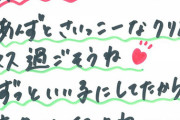 あんずとさいっこーなクリ
マス過ごそうね♥
ずっといい子にしてたから